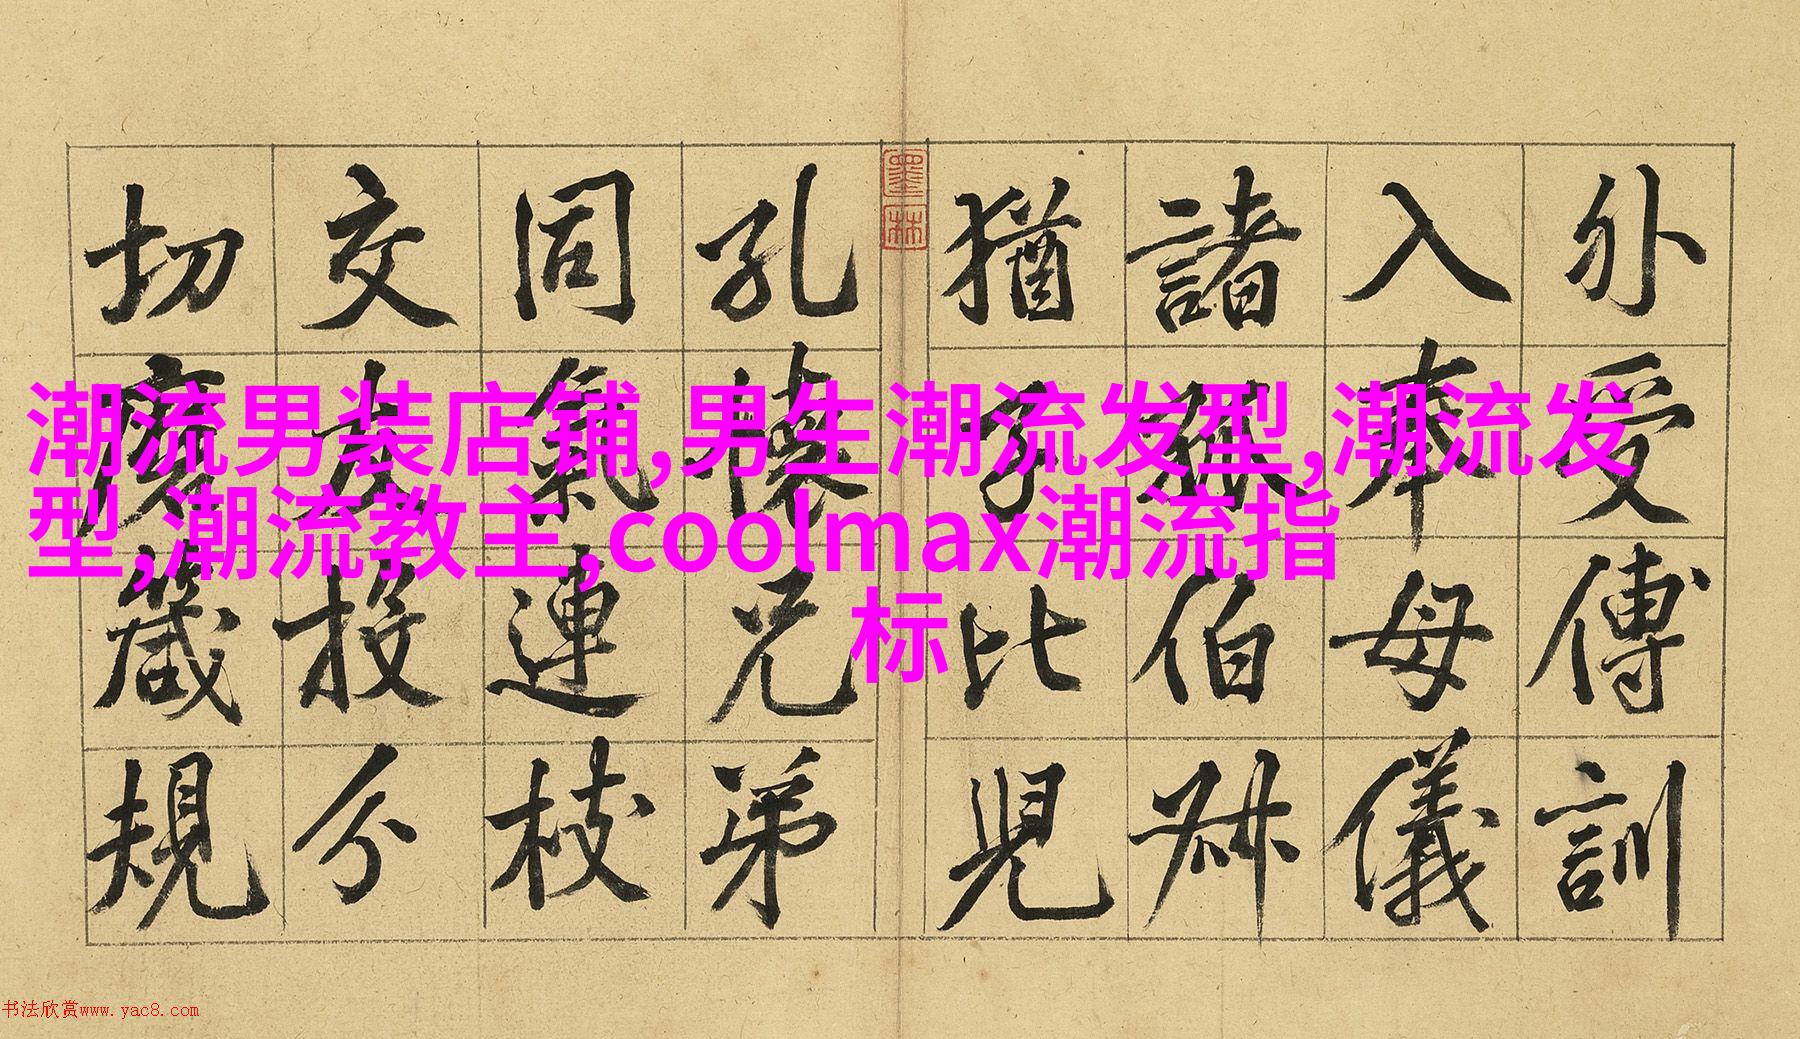 潮流男装店铺,男生潮流发型,潮流发
型,潮流教主,coolmax潮流指
标
外受傅訓
入奉母儀
諸姑伯叔
猶子比兒
墨林
孔懷兄弟
同氣連枝
交友投分
切磨箴規
书法欣赏www.yac8.com